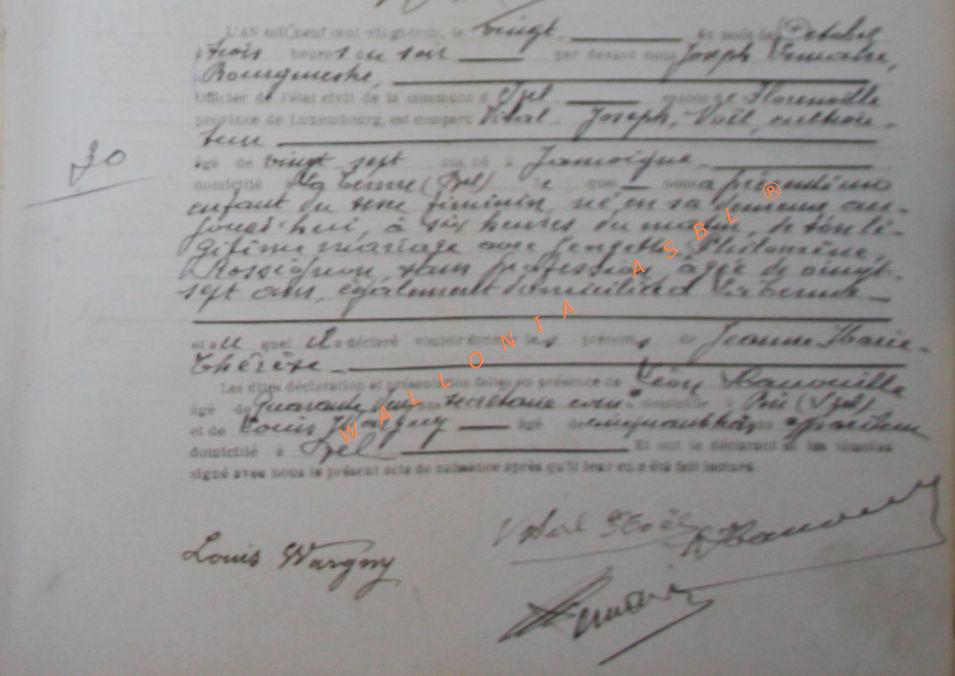 L'AN mil neuf cent vingt-trois, le vingt du mois de Octobre
trois heures du soir par devant nous Joseph Lemaire,
Bourgmestre,
Officier de l'état civil de la commune d Izel, canton de Florenville
province de Luxembourg, est comparu Vital Joseph, Noël, cultiva-
teur
âgé de vingt sept ans, né à Jamoigne
domicilié à (Izel) le quel nous a présenté un
enfant du sexe féminin, né en sa demeure au-
jourd'hui, à six heures du matin, de son lé-
gitime mariage avec Philomène,
Rossignon, sans profession, âgée de vingt-
sept ans, également domiciliée à
et au quel il a déclaré vouloir donner les prénoms de Jeanne Marie-
Thérèse
Les dites déclaration et présentation faites en présence de Léon Hanouille
âgé de quarante ans secrétaire com. domicilié à Pin (Izel)
et de Louis Wargny âgé de cinquante ans
domicilié à Izel Et ont le déclarant et les témoins
signé avec nous le présent acte de naissance après qu'il leur en a été fait lecture.
30
Vital Noël
L Hanouille
Louis Wargny
Lemaire
WALLONIA ASBL ®